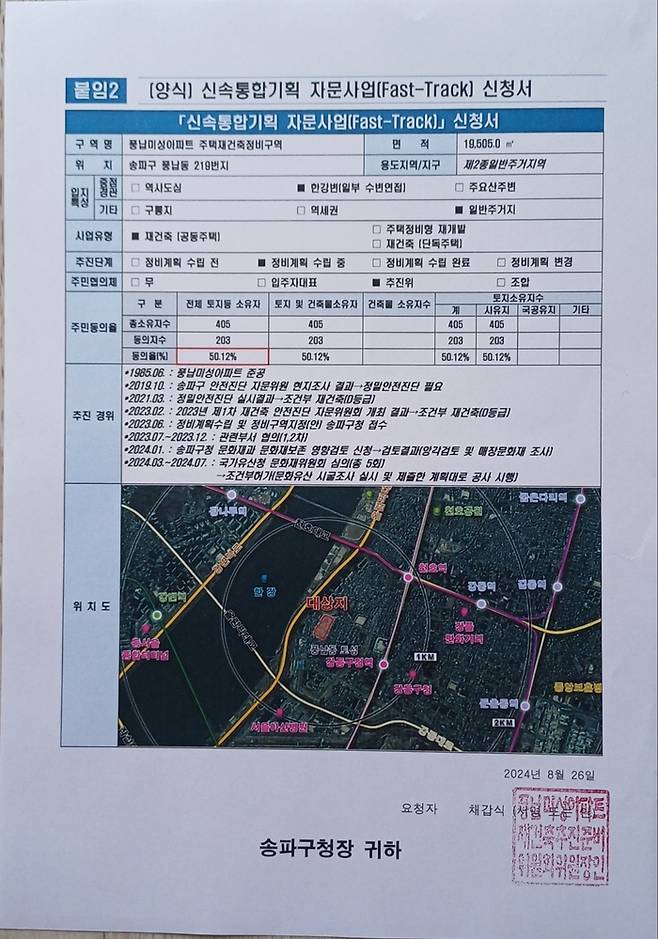 붙임2 (양식) 신속통합기획 자문사업(Fast-Track) 신청서
「신속통합기획 자문사업(Fast-Track)」 신청서
구 역 명 풍납미성아파트 주택재건축정비구역 면 적 19,505.0 ㎡
위 치 송파구 풍납동 219번지 용도지역/지구 제2종일반주거지역
입지특성 중점경관 □ 역사도심 ■ 한강변(일부 수변연접) □ 주요산주변
기타 □ 구릉지 □ 역세권 ■ 일반주거지
사업유형 ■ 재건축 (공동주택) □ 주택정비형 재개발
□ 재건축 (단독주택)
추진단계 □ 정비계획 수립 전 ■ 정비계획 수립 중 □ 정비계획 수립 완료 □ 정비계획 변경
주민협의체 □ 무 □ 입주자대표 ■ 추진위 □ 조합
주민동의율 구 분 전체 토지등 소유자 토지 및 건축물소유자 건축물 소유자수 토지소유자수
계 사유지 국공유지 기타
총소유자수 405 405 405 405
동의자수 203 203 203 203
동의율(%) 50.12% 50.12% 50.12% 50.12%
추진 경위
*1985.06. : 풍납미성아파트 준공
*2019.10. : 송파구 안전진단 자문위원 현지조사 결과→정밀안전진단 필요
*2021.03. : 정밀안전진단 실시결과→조건부 재건축(D등급)
*2023.02. : 2023년 제1차 재건축 안전진단 자문위원회 개최 결과→조건부 재건축(D등급)
*2023.06. : 정비계획수립 및 정비구역지정(안) 송파구청 접수
*2023.07.~2023.12. : 관련부서 협의(1,2차)
*2024.01. : 송파구청 문화재과 문화재보존 영향검토 신청→검토결과(앙각검토 및 매장문화재 조사)
*2024.03.~2024.07. : 국가유산청 문화재위원회 심의(총 5회)
→조건부허가(문화유산 시굴조사 실시 및 제출한 계획대로 공사 시행)
위 치 도
광나루역
굽은다리역
천호대교
천호공원
천호역
강동역
길동역
강변역
한 강
대상지
강풀
만화거리
동서울
종합터미널
풍납동 토성
강동구청역
1KM
강동구청
둔촌동역
중앙보훈병
서울아산병원
강동대로
2KM
2024년 8월 26일
요청자 채갑식 (서명 또는 인)
풍납미성아파트
재건축추진준비
위원회위원장인
송파구청장 귀하